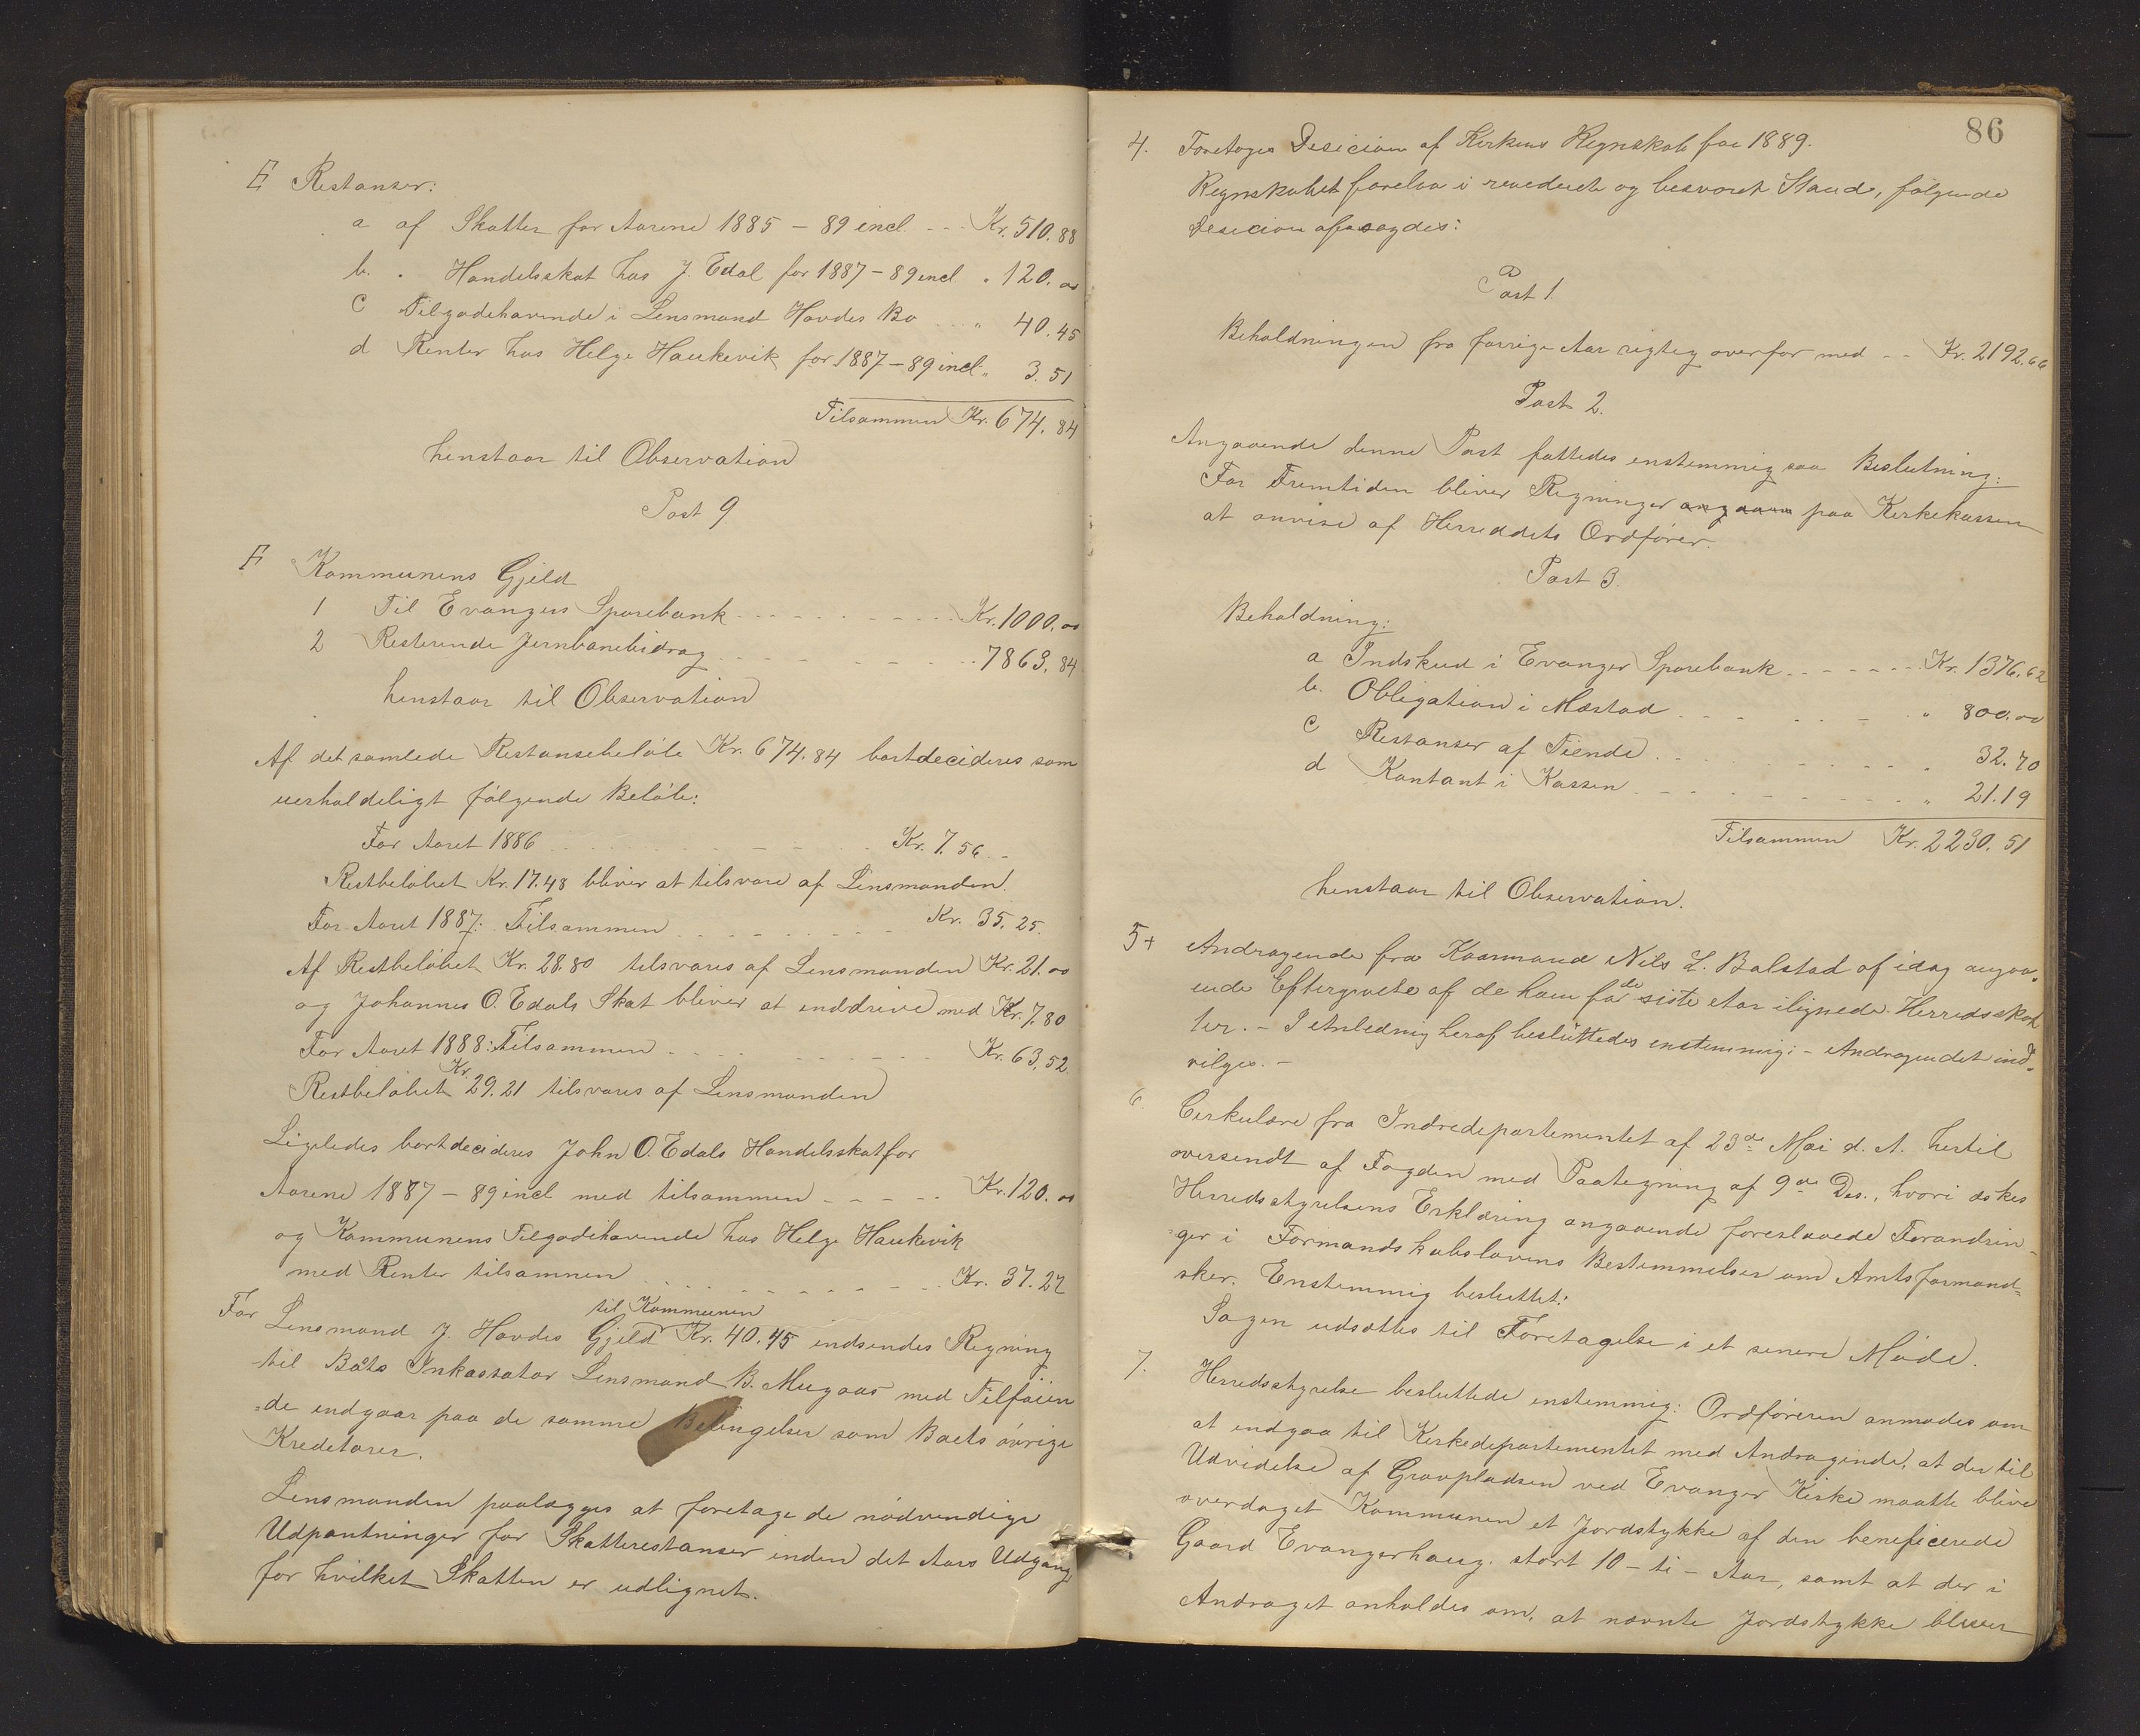 E Restanser:
a af Skatter for Aarene 1885 – 89 incl. - - - Kr. 510.88
b. „ Handelsskat hos J. Edal for 1887 – 89 incl „ 120.00
c Tilgodehavende i Lensmand Hovdes Bo - - - „ 40.45
d Renter hos Helge Haukevik for 1887 – 89 incl. „ 3.51
Tilsammen Kr. 674.84
henstaar til Observation
Post 9
F Kommunens Gjeld
1 Til Evangers Sparebank - - - - - - - - Kr. 1000.00
2 Resterende Jernbanebidrag - - - - - - - - 7863.84
henstaar til Observation
Af det samlede Restansebeløb Kr. 674.84 bortdecideres som
uerholdeligt følgende Beløb:
For Aaret 1886 - - - - - - - - Kr. 7.56 -
Restbeløbet Kr. 17.48 bliver at tilsvare af Lensmanden.
For Aaret 1887: Tilsammen - - - - - - - - Kr. 35.25.
Af Restbeløbet Kr. 28.80 tilsvares af Lensmanden Kr. 21.00
og Johannes O. Edals Skat bliver at inddrive med Kr. 7.80
For Aaret 1888: Tilsammen - - - - - - - - Kr. 63.52
Restbeløbet Kr. 29.21 tilsvares af Lensmanden
Ligeledes bortdecideres John O. Edals Handelsskat for
Aarene 1887 – 89 incl med tilsammen - - - - - Kr. 120.00
og Kommunens Tilgodehavende hos Helge Haukevik
med Renter tilsammen - - - - - - - - Kr. 37.27
til Kommunen
For Lensmand J. Hovdes Gjeld Kr. 40.45 indsendes Regning
til Bo'ts Inkassator Lensmand B. Mugaas med Tilføien
=de indgaar paa de samme Betingelser som Boets øvrige
Kreditorer.
Lensmanden paalægges at foretage de nødvendige
Udpantninger for Skatterestanser inden det Aars Udgang
for hvilket Skatten er udlignet.
86
4. Foretoges Desicion af Kirkens Regnskab for 1889.
Regnskabet forelaa i revideret og besvaret Stand, følgende
Desicion afsagdes:
Post 1.
Beholdningen fra forrige Aar rigtig overfør med - - Kr. 2192.66
Post 2.
Angaaende denne Post fattedes enstemmig saa Beslutning:
For Fremtiden bliver Regninger angaaen paa Kirkekassen
at anvise af Herredets Ordfører.
Post 3.
Beholdning:
a Indskud i Evanger Sparebank - - - - - - Kr. 1376.62
b. Obligation i Mestad - - - - - - „ 800.00
c Restanser af Tiende - - - - - - „ 32.70
d Kontant i Kassen - - - - - - „ 21.19
Tilsammen Kr. 2230.51
henstaar til Observation.
5+ Andragende fra Kaarmand Nils L. Bolstad af idag angaa-
ende Eftergivelse af de ham for de siste Aar ilignede Herredsskat
ter. – I Anledning heraf besluttedes enstemmig: – Andragendet ind-
vilges. –
6 Cirkulære fra Indredepartementet af 23de Mai d. A. hertil
oversendt af Fogden med Paategning af 9de Ds., hvori æskes
Herredsstyrelsens Erklæring angaaende foreslaaede Forandrin-
=ger i Formandskabslovens Bestemmelser om Amtsformand-
sker. Enstemmig besluttet:
Sagen udsættes til Foretagelse i et senere Møde.
7. Herredsstyrelse besluttede enstemmig: Ordføreren anmodes om
at indgaa til Kirkedepartementet med Andragende, at der til
Udvidelse af Gravpladsen ved Evanger Kirke maatte blive
overdraget Kommunen et Jordstykke af den beneficerede
Gaard Evangerhaug. stort 10 – ti – Aar, samt at der i
Andraget anholdes om, at nævnte Jordstykke bliver